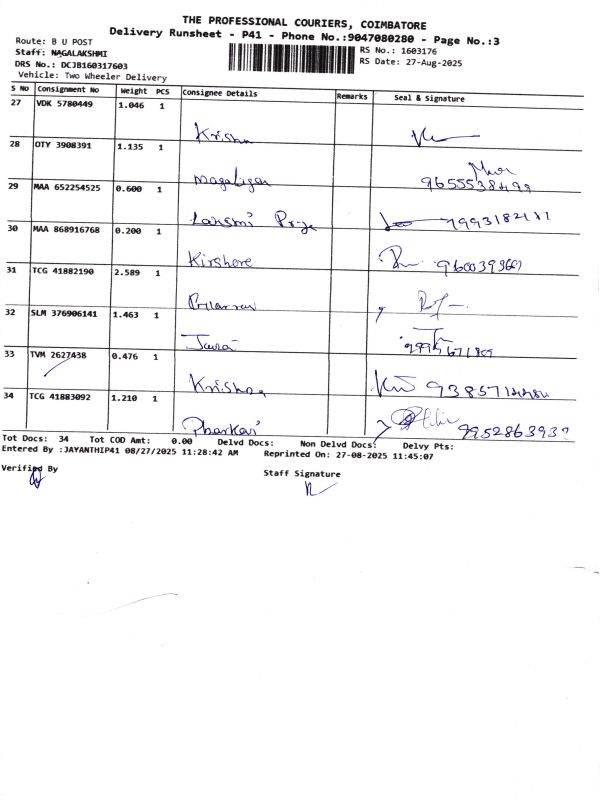 THE PROFESSIONAL COURIERS, COIMBATORE
Delivery Runsheet - P41 - Phone No.:9047080280 - Page No.:3
Route: B U POST
Staff: NAGALAKSHMI
DRS No.: DCJB160317603
Vehicle: Two Wheeler Delivery
RS No.: 1603176
RS Date: 27-Aug-2025
S No Consignment No Weight PCS Consignee Details Remarks Seal & Signature
27 VDK 5780449 1.046 1 Krishn
28 OTY 3908391 1.135 1
29 MAA 652254525 0.600 1 Laksmi Priya
30 MAA 868916768 0.200 1 Kirshore
31 TCG 41882190 2.589 1
32 SLM 376906141 1.463 1
33 TVM 2627438 0.476 1 Krishna
34 TCG 41883092 1.210 1
Tot Docs: 34 Tot COD Amt: 0.00 Delvd Docs: Non Delvd Docs: Delvy Pts:
Entered By :JAYANTHIP41 08/27/2025 11:28:42 AM Reprinted On: 27-08-2025 11:45:07
Verified By
Staff Signature